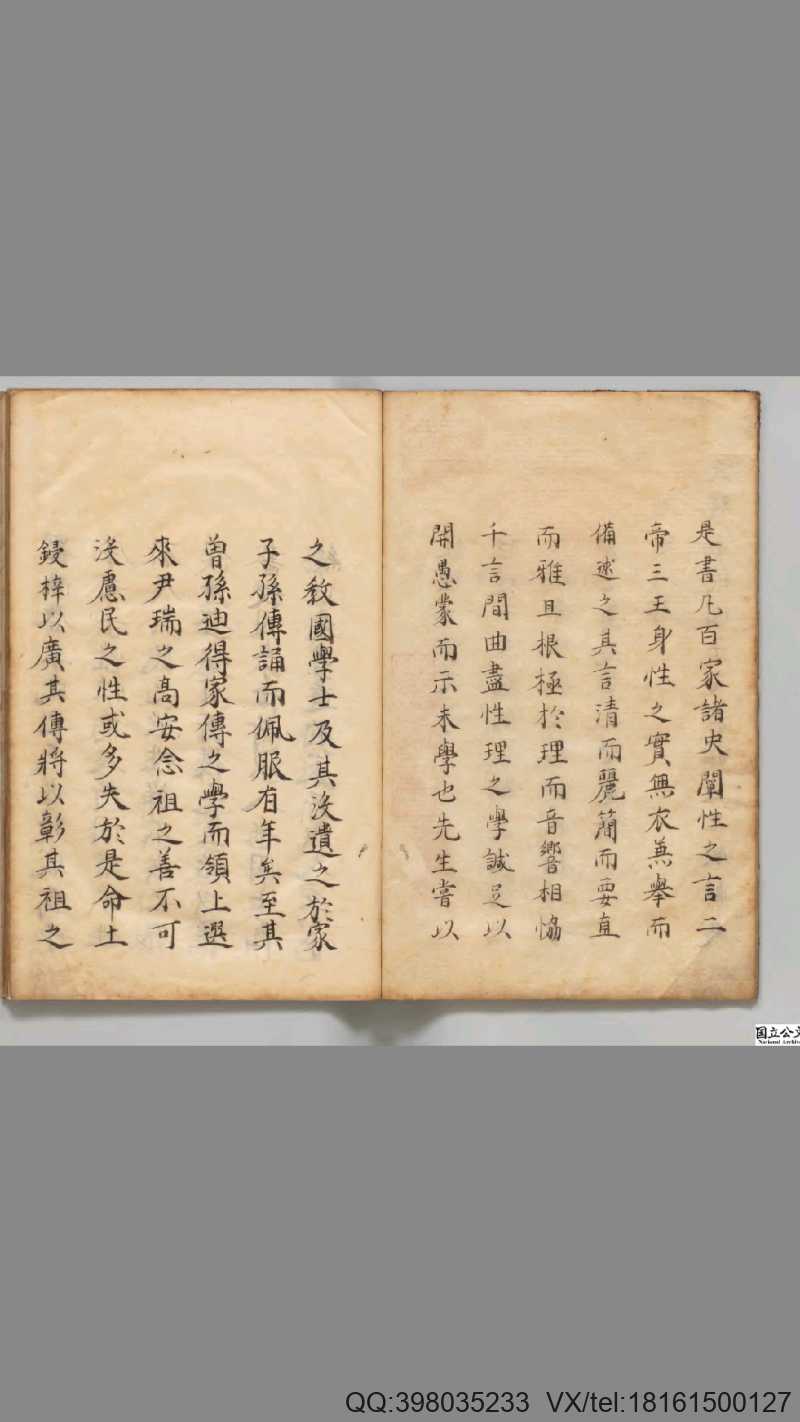 是書凡百家諸史闡性之言二
帝三王身性之實無衣無舉而
備述之其言清而麗簡而要直
而雅且根極於理而音響相恊
千言間曲盡性理之學誠足以
開愚蒙而示未學也先生嘗以
之教國學士及其沒遺之於家
子孫傳誦而佩服有年矣至其
曾孫迪得家傳之學而領上選
來尹瑞之髙安念祖之善不可
沒慮民之性或多失於是命土
鋟梓以廣其傳將以彰其祖之
国立公文
National Archiv
QQ:398035233 VX/tel:18161500127